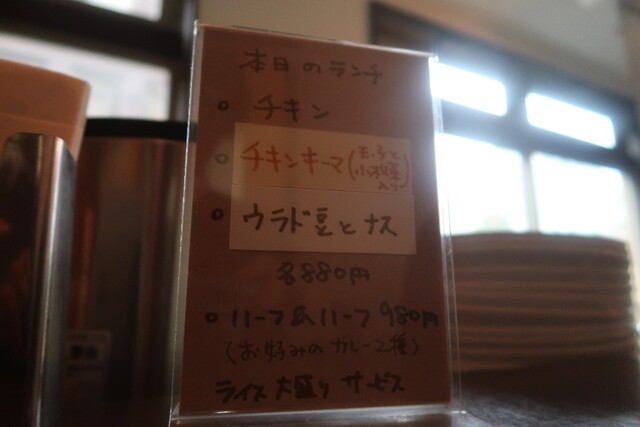 本日のランチ
○ チキン
○ チキンキーマ(玉子と
小松菜
入り)
○ ウラド豆とナス
各880円
○ ハーフ&ハーフ 980円
(お好みのカレー2種)
ライス大盛り サービス